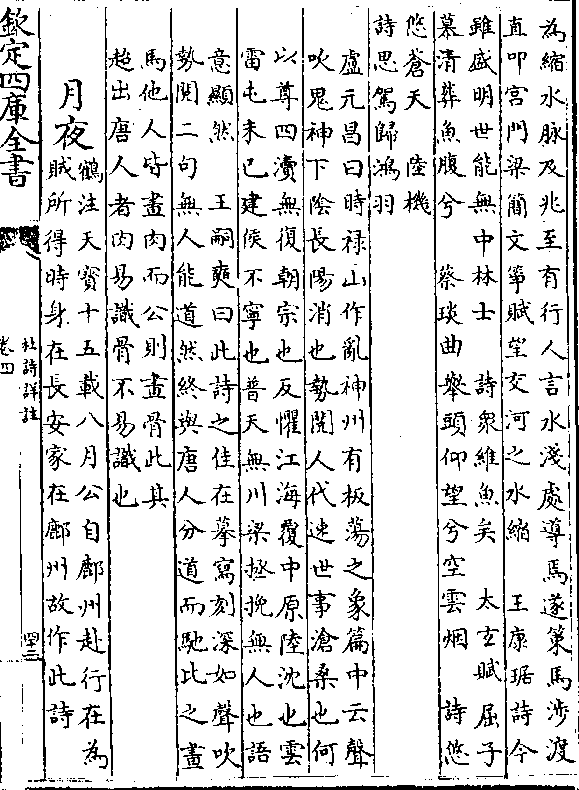 為縮水脉及兆至有行人言水淺處導馬遂策馬涉渡
直叩宮門梁簡文箏賦望交河之水縮　王康琚詩今
雖盛明世能無中林士　詩衆維魚矣　太玄賦屈子
慕清葬魚腹兮　蔡琰曲舉頭仰望兮空雲烟　詩悠
悠蒼天　陸機
詩思駕歸鴻羽
盧元昌曰時禄山作亂神州有板蕩之象篇中云聲
吹鬼神下陰長陽消也勢閱人代速世事滄桑也何
以尊四瀆無復朝宗也反懼江海覆中原陸沈也雲
雷屯未已建侯不寧也普天無川梁拯挽無人也語
意顯然　王嗣奭曰此詩之佳在摹寫刻深如聲吹
勢閱二句無人能道然終與唐人分道而馳比之畫
馬他人皆畫肉而公則畫骨此其
超出唐人者肉易識骨不易識也
月夜
鶴注天寶十五載八月公自鄜州赴行在為
賊所得時身在長安家在鄜州故作此詩
欽定四庫全書
杜詩詳註
卷四